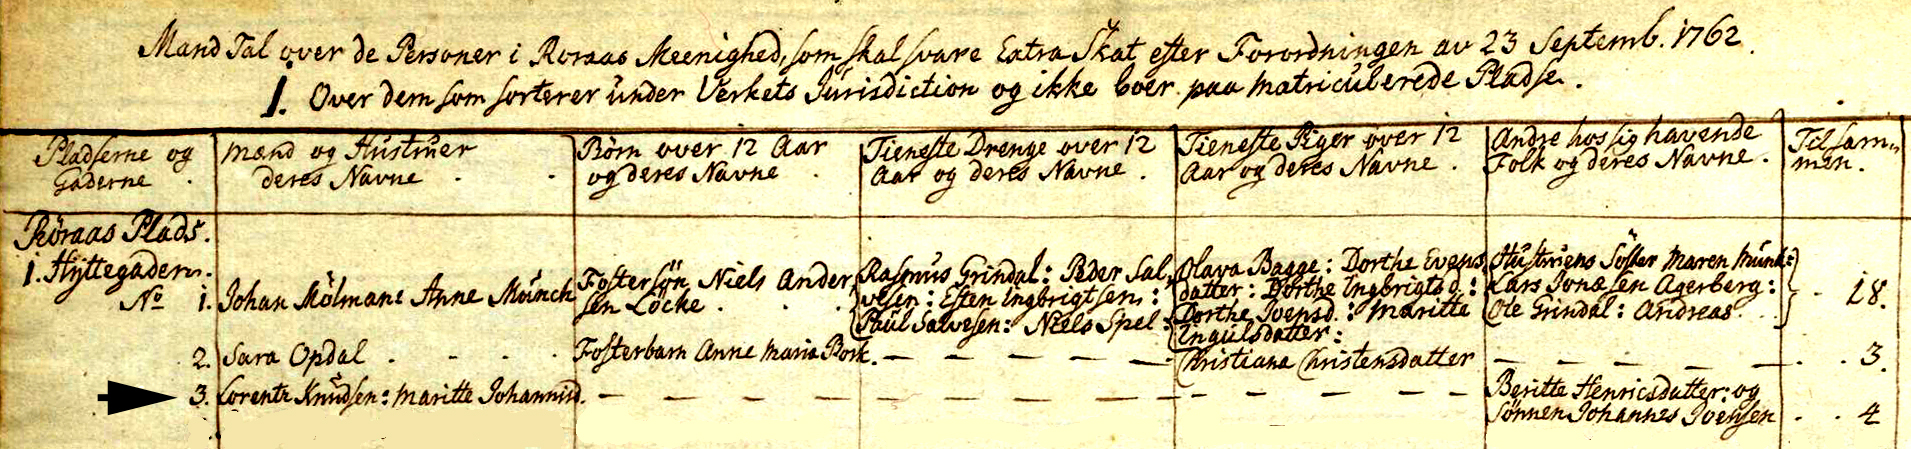 Mand Tal over de Personer i Roraas Meenighed, som skal svare Extra Skat efter Forordningen av 23 Septemb. 1762.
1. Over dem som sorterer under Verkets Jurisdiction og ikke boer paa matriculerede Pladse.
Pladserne og Gaderne.
Mænd og Hustruer deres Navne
Börn over 12 Aar og deres Navne.
Tieneste Drenge over 12 Aar og deres Navne.
Tieneste Piger over 12 Aar og deres Navne.
Andre hos sig havende Folk og deres Navne.
Tilsam-men.
Röraas Plads.
1. Hyttegaden.
No 1. Johan Mölmann Anne Münch
Fostersön Niels Ander
sen Locke.
Rasmus Grindal: Peder Sal,,
vesen: Esten Engbrigtsen:
Paul Salvesen: Niels Spel:
Olava Bagge: Dorthe Evens
datter: Dorthe Ingbrigtsd:
Dorthe Joensd: Maritte
Engulsdatter:
Hustruens Söster Maren Münk:
Lars Jonæsen Agerberg:
Ole Grindal: Andreas
18.
2. Sara Opdal
Fosterbarn Anne Maria Bork.
Christiana Christensdatter
3.
3. Lorentz Knudsen: Maritte Johannisd.
Beritte Henricsdatter: og
Sönnen Johannes Joensen
4